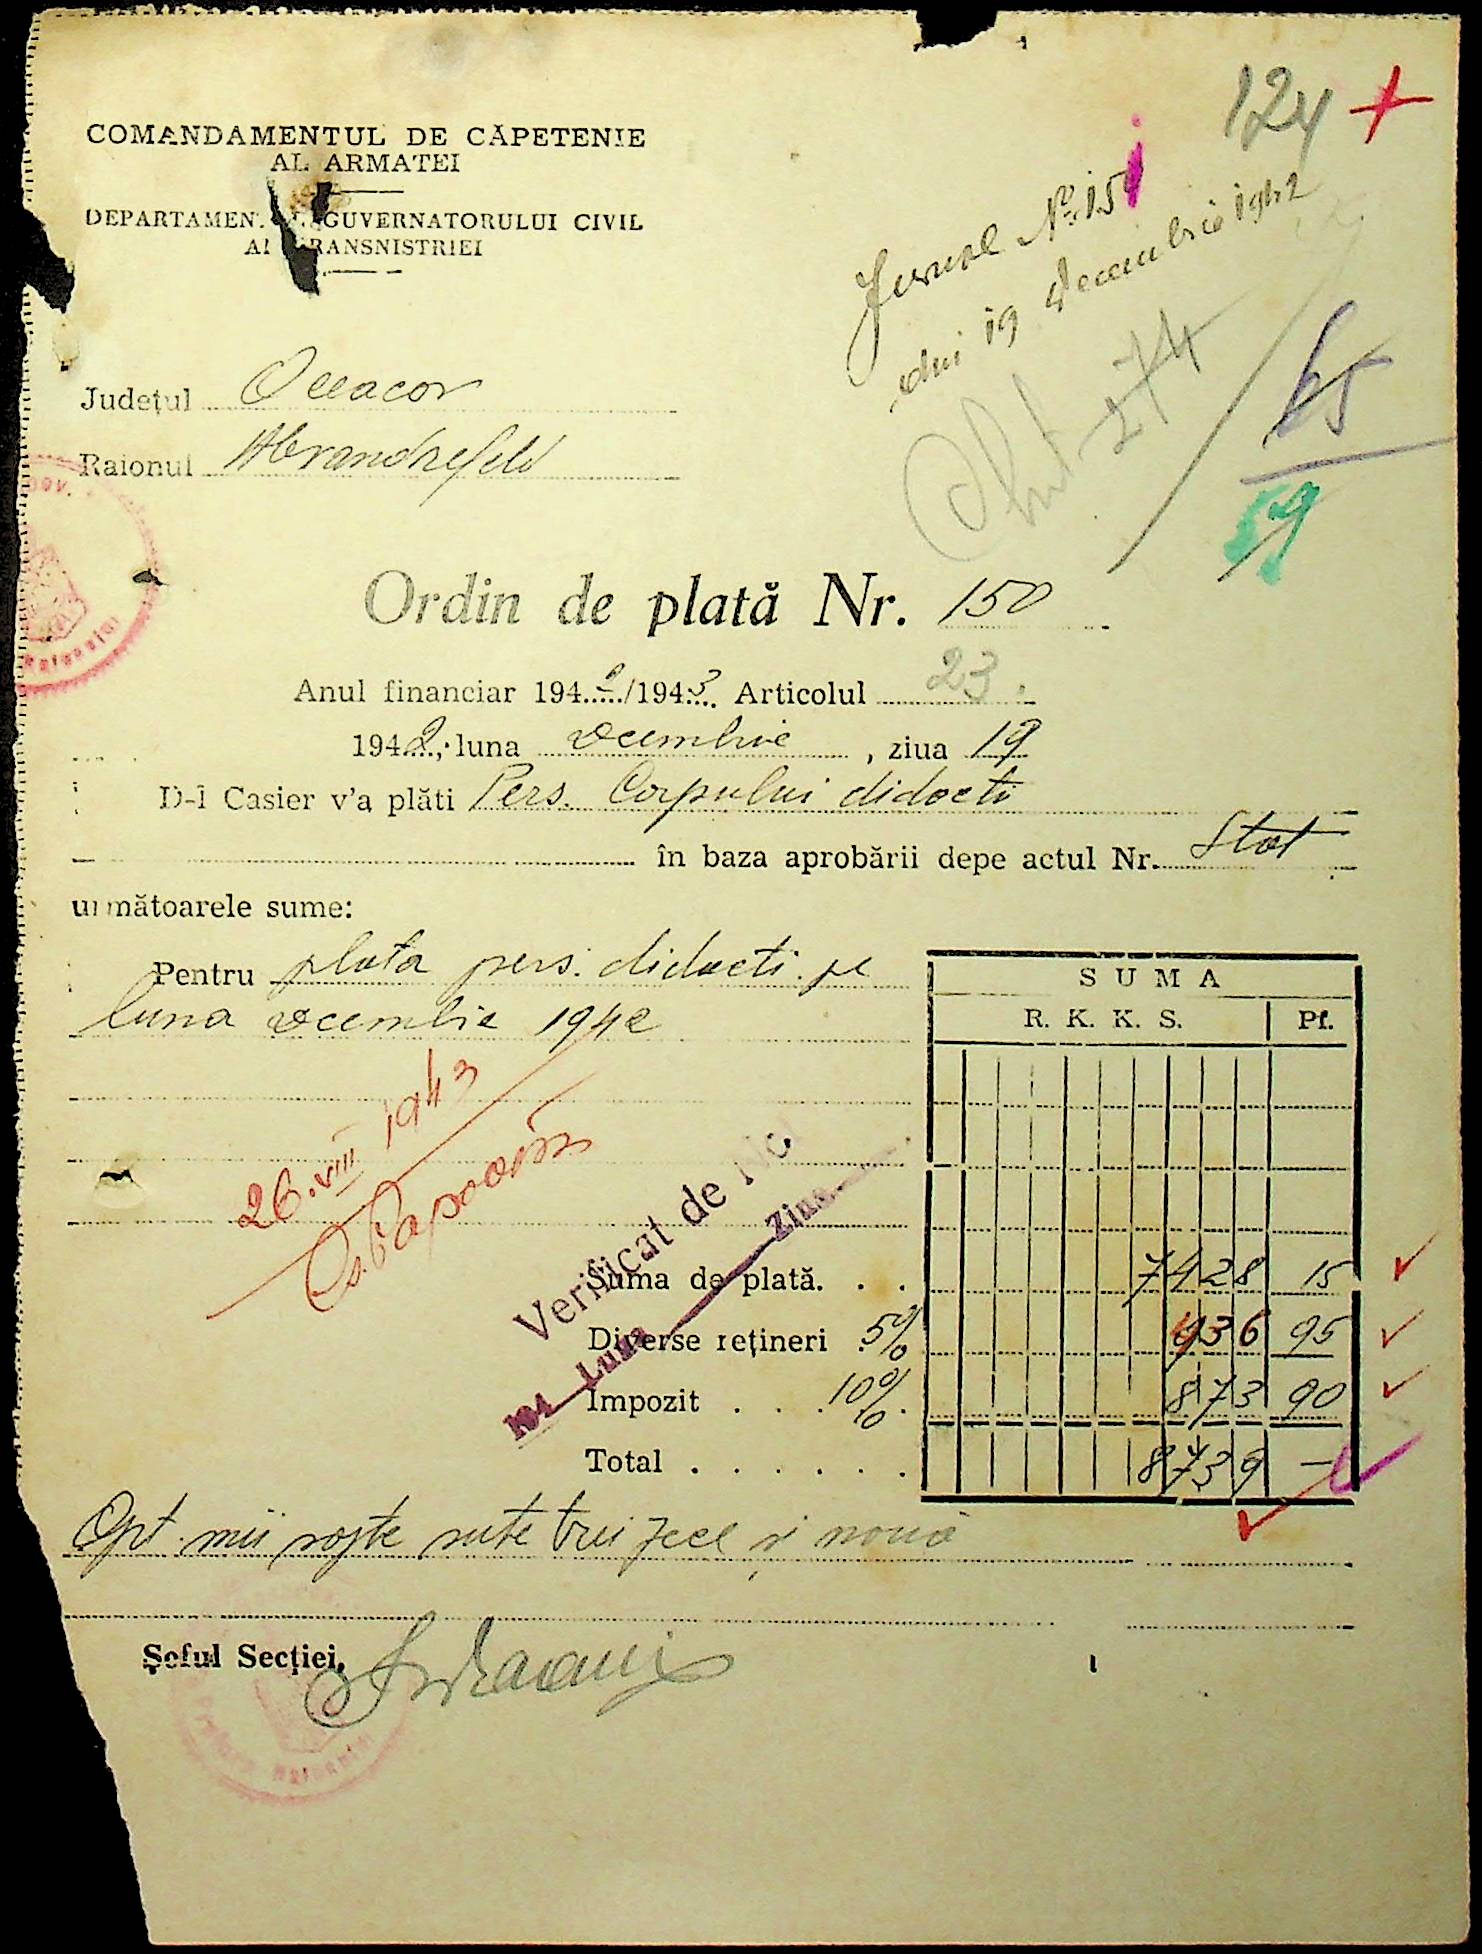 124 +
COMANDAMENTUL DE CĂPETENIE
AL ARMATEI
DEPARTAMEN. GUVERNATORULUI CIVIL
AL TRANSNISTRIEI
Jurnal № 15
din 19 Decembrie 1942
274
65
59
Județul Oceacov
Raionul
Ordin de plată Nr. 150
Anul financiar 1942/1943 Articolul 23
1942, luna Decembrie, ziua 19
D-l Casier v'a plăti Pers. Corpului didacti
în baza aprobării depe actul Nr. Stat
următoarele sume:
Pentru plata pers. didacti. pe
luna Decembie 1942
SUMA
R. K. K. S. Pf.
26.VIII 1943
Verificat de No
194 Luna Ziua
Suma de plată. . . 7428 15
Diverse rețineri 5% 436 95
Impozit . . . 10% . 873 90
Total . . . . . . 8739 —
Opt mii șapte sute trei zeci și nouă
Șeful Secției,